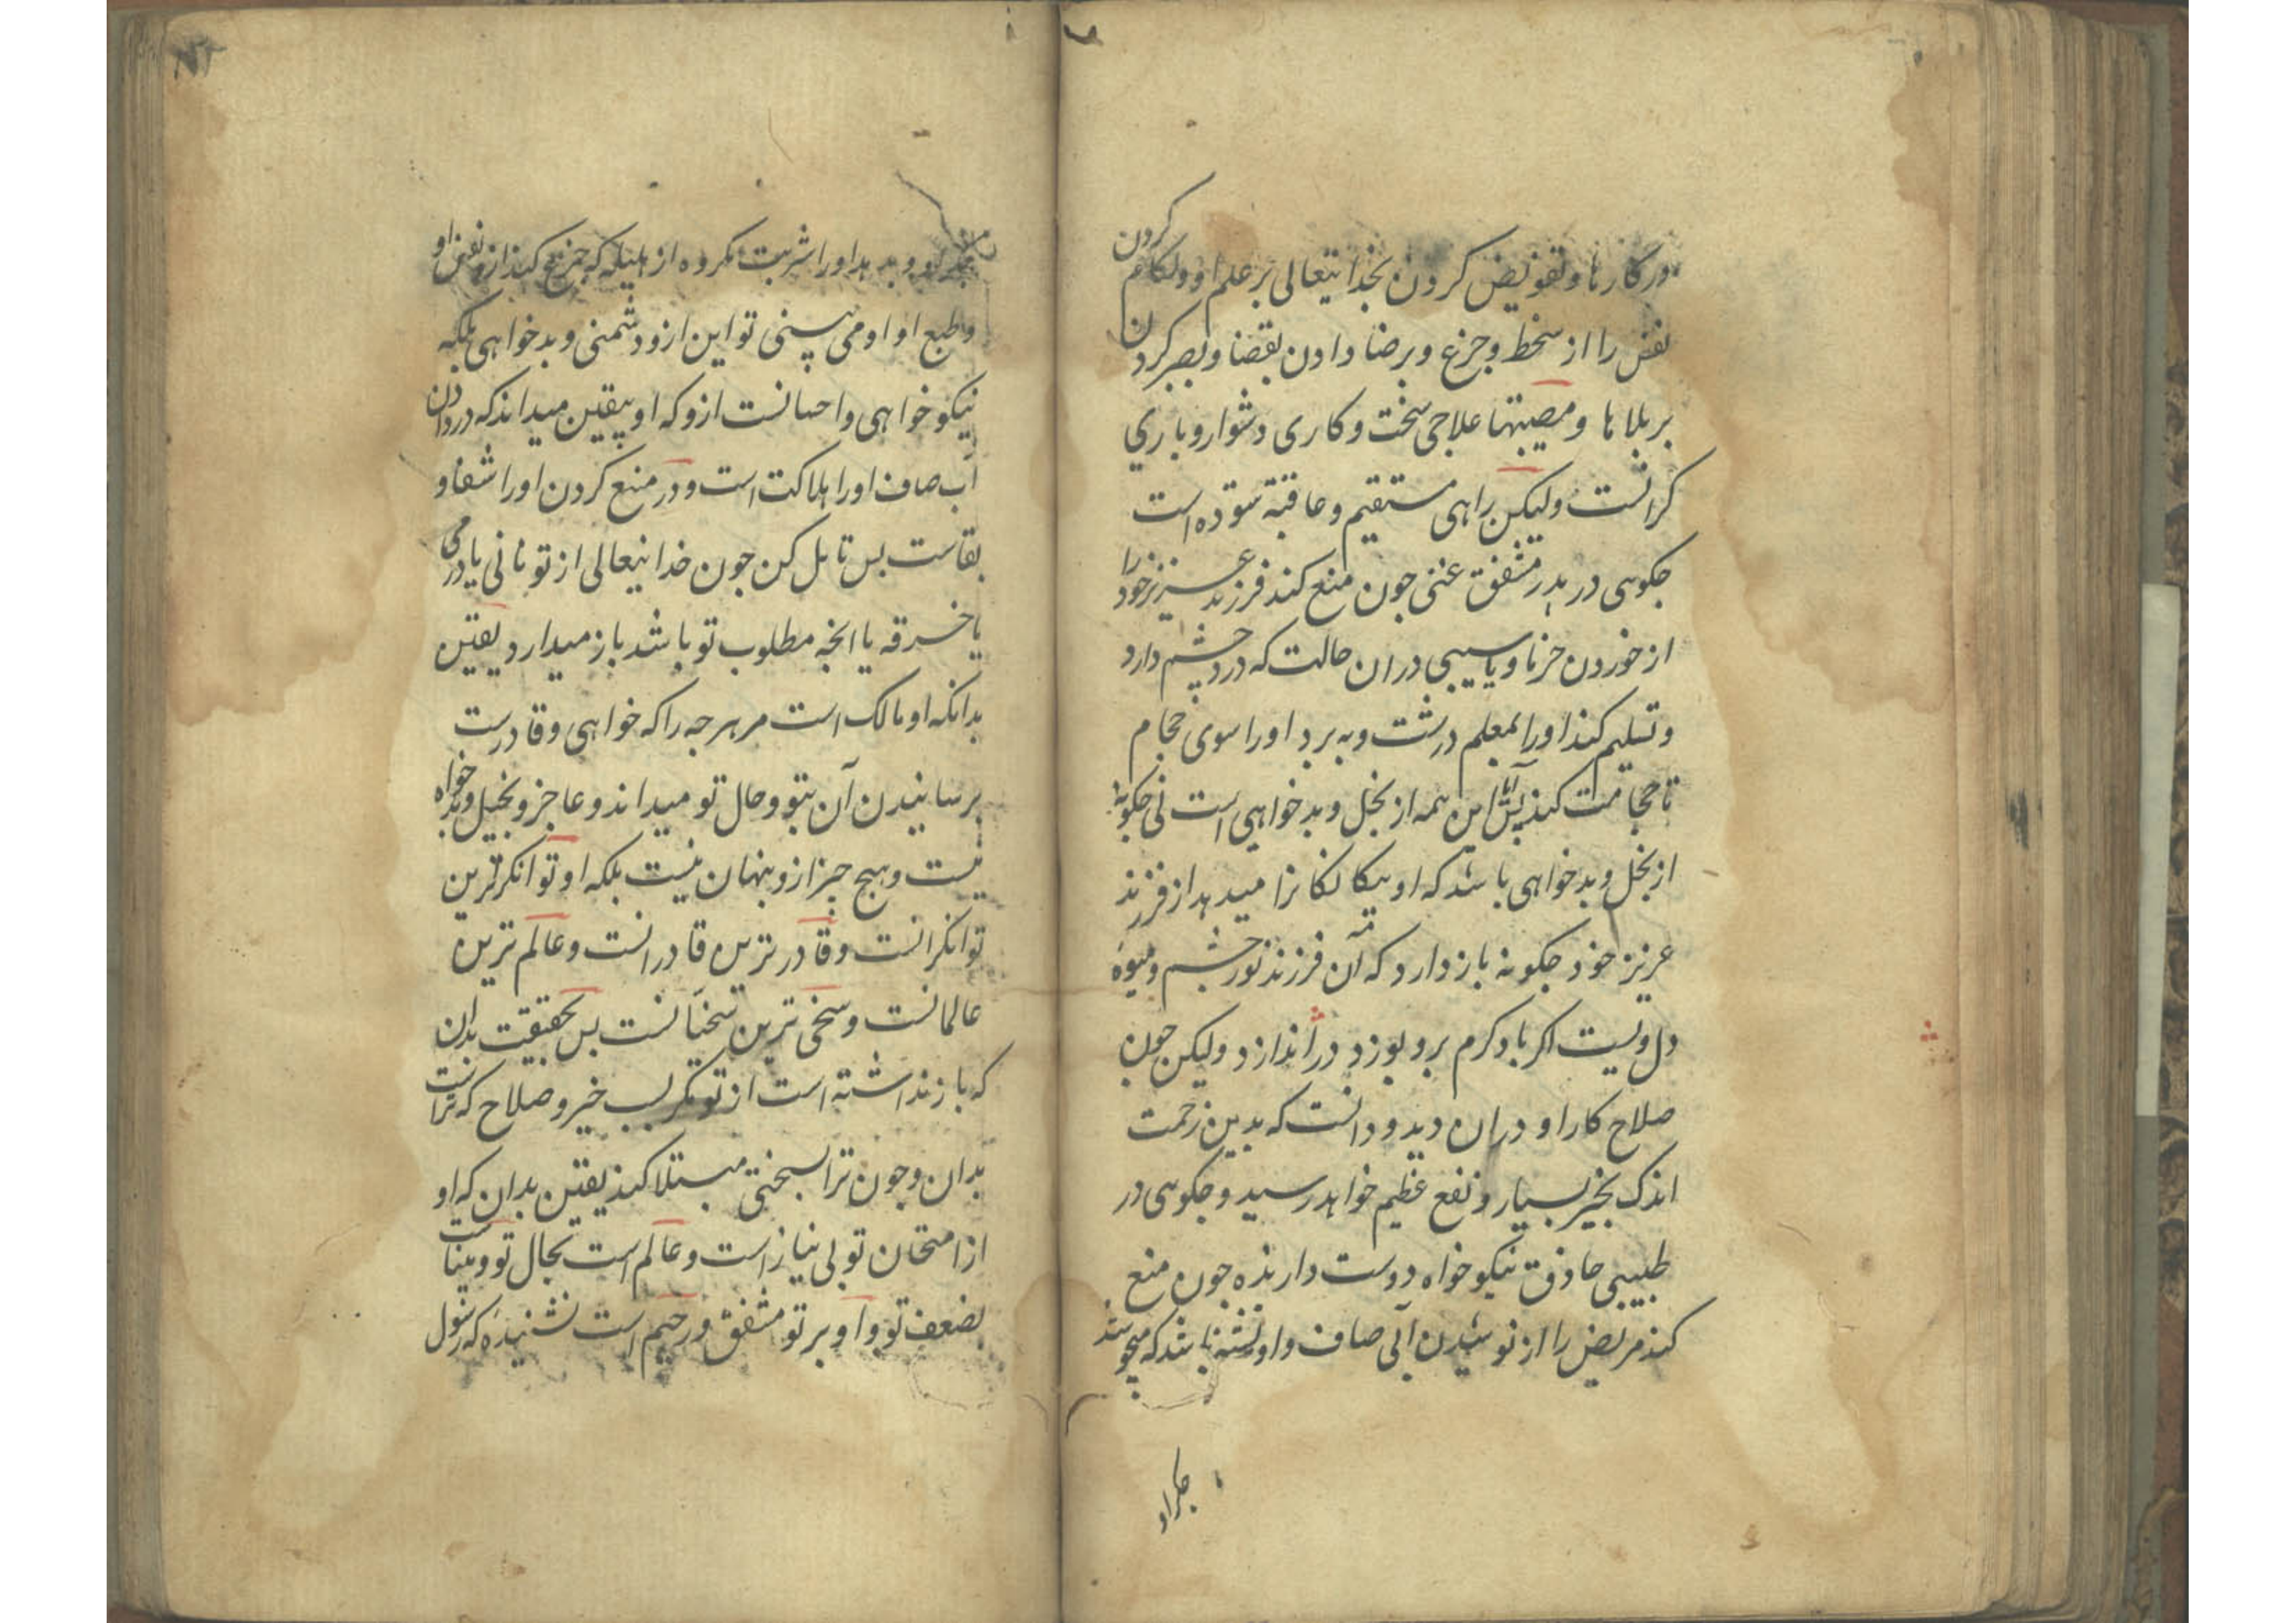 در کارها و تفویض کردن بخدایتعالی بر علم او و لکام کردن
نفس را از سخط و جزع و برضا دادن بقضا و بصبر کردن
بر بلاها و مصیبتها علاجی سخت و کاری دشوار و باری
کرانست ولیکن راهی مستقیم و عاقبة ستوده است
چکوئی در پدر مشفق غنی جون منع کند فرزند عزیز خود را
از خوردن خرما و یا سیبی دران حالت که درد چشم دارد
و تسلیم کند او را بمعلم درشت و به برد او را سوی حجام
تا حجامت کند پس آیا این همه از بخل و بدخواهی است نی چکونه
از بخل و بدخواهی باشد که او بیکانکانرا میدهد از فرزند
عزیز خود چکونه باز دارد که آن فرزند نور چشم و میوهٔ
دل ویست اکر باد کرم برو بوزد در اندازد ولیکن جون
صلاح کار او دران دید و دانست که بدین زحمت
اندک بخیر بسیار و نفع عظیم خواهد رسید و چکوئی در
طبیبی حاذق نیکو خواه دوست دارنده جون منع
کند مریض را از نوشیدن آبی صاف و او تشنه باشد که میجوشد
جکر او
جکر او و بدهد او را شربت مکروه از هلیله که جزع کند ازو نفس او
و طبع او او می بینی تو این ازو دشمنی و بدخواهی بلکه
نیکو خواهی و احسانست ازو که او بیقین میداند که در دادن
آب صاف او را هلاکت است و در منع کردن او را شفا و
بقاست بس تامل کن جون خدایتعالی از تو نانی یا درمی
یا خرقه یا انچه مطلوب تو باشد باز میدارد یقین
بدانکه او مالک است مر هرچه را که خواهی و قادرست
برسانیدن آن بتو و حال تو میداند و عاجز و بخیل و بدخواه
نیست و هیچ جیز ازو پنهان نیست بلکه او توانکرترین
توانکرانست و قادر ترین قادرانست و عالم ترین
عالمانست و سخی ترین سخیانست بس بحقیقت بدان
که باز نداشته است از تو مکر بسبب خیر و صلاح که تراست
بدان و جون ترا بسختی مبتلا کند یقین بدان که او
از امتحان تو بی نیاز است و عالم است بحال تو و بیناست
بضعف تو و او بر تو مشفق و رحیم است نشنیدهٔ که رسول